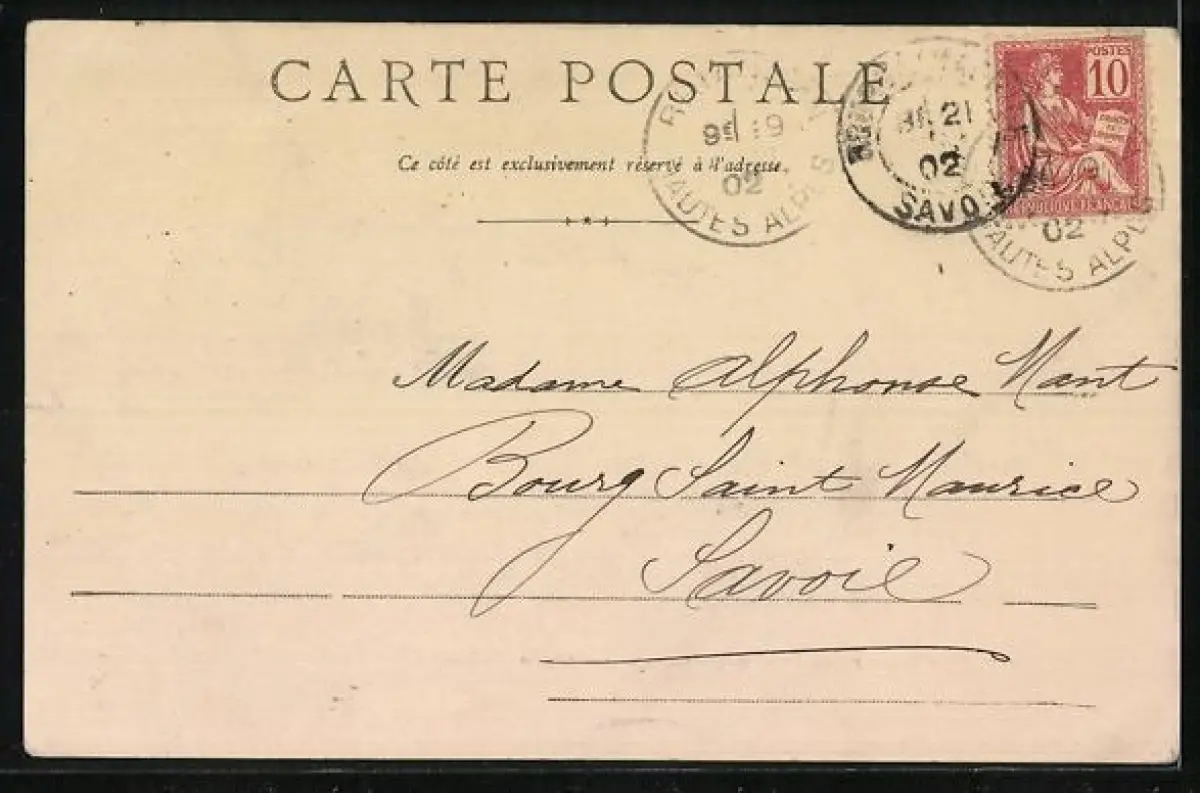 CARTE POSTALE
Ce côté est exclusivement réservé à l'adresse.
POSTES
10
DROITS DE L'HOMME
REPUBLIQUE FRANÇAISE
9E 19
02
HAUTES ALPES
21
02
SAVOIE
02
HAUTES ALPES
Madame Alphonse Mant
Bourg Saint Maurice
Savoie